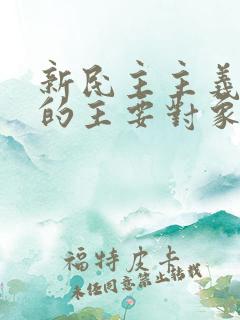 新民主主義
的主要對象
福特皮卡
未经同意禁止转载